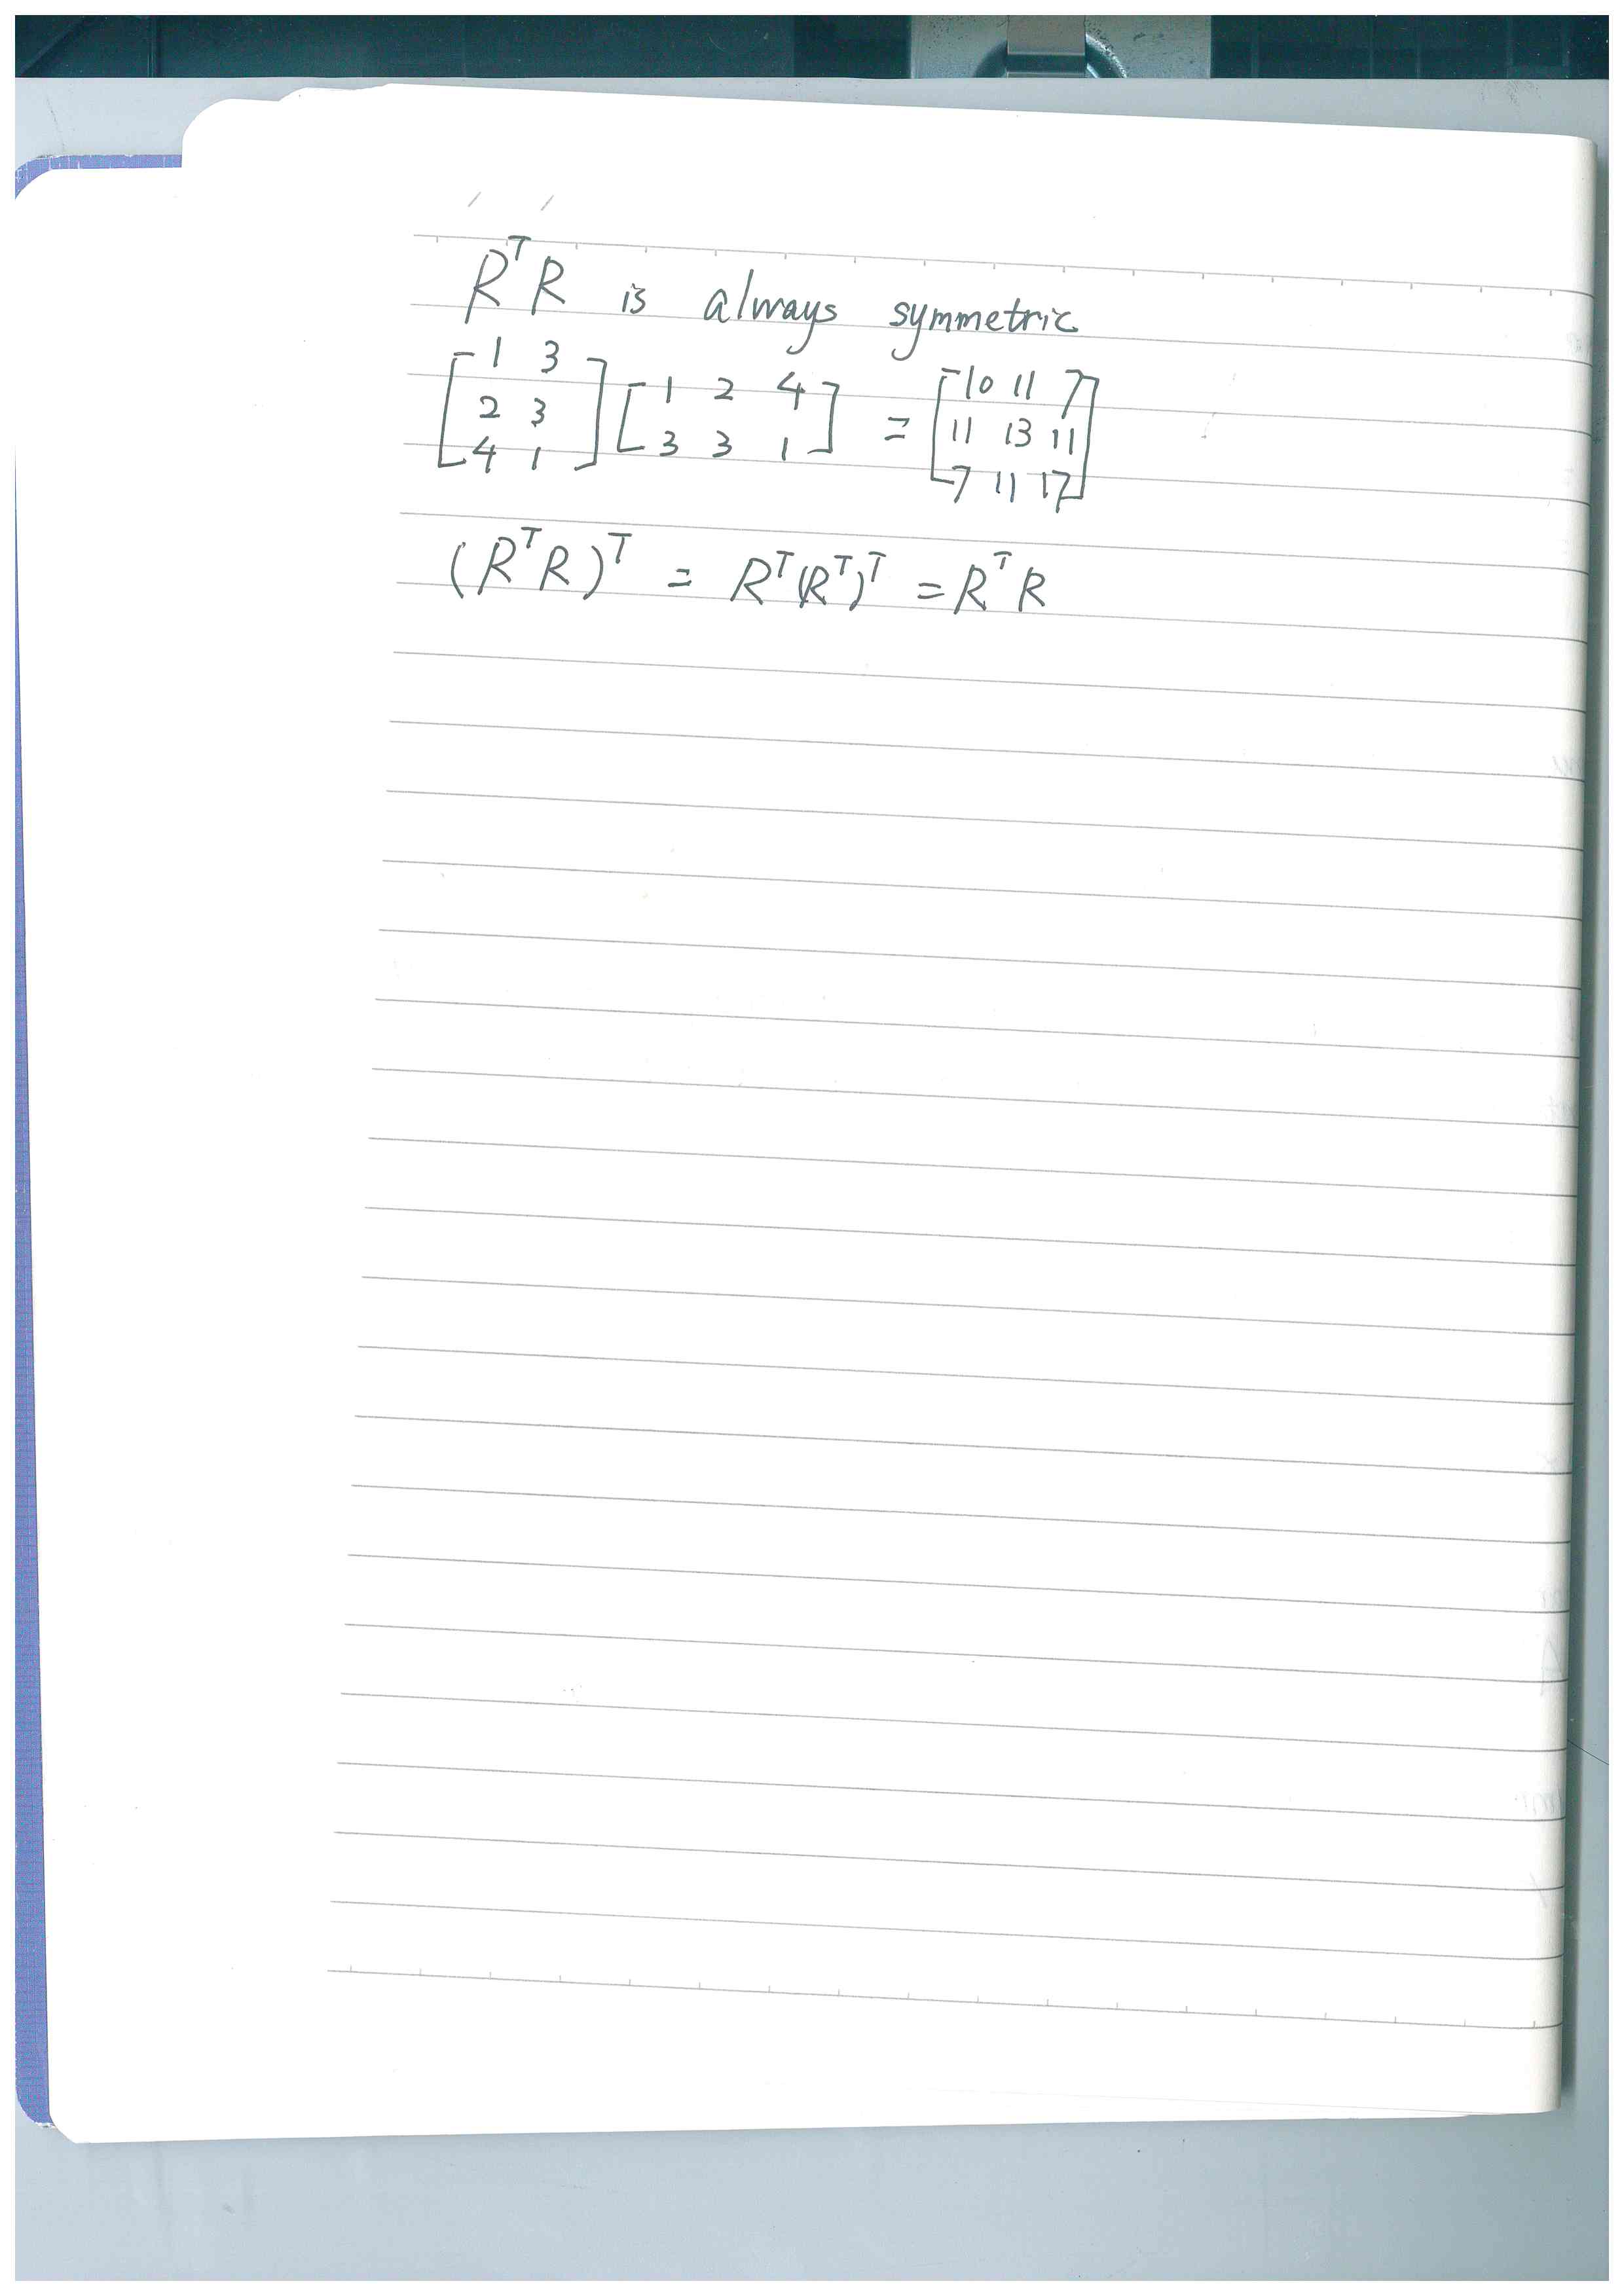 RᵀR is always symmetric
[1 3; 2 3; 4 1] [1 2 4; 3 3 1] = [10 11 7; 11 13 11; 7 11 17]
(RᵀR)ᵀ = Rᵀ(Rᵀ)ᵀ = RᵀR